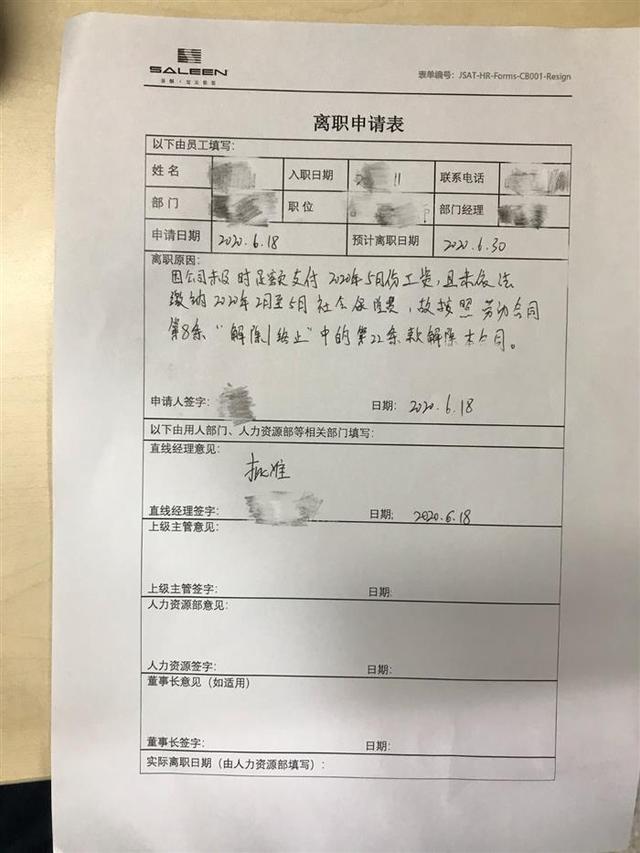 SALEEN
表单编号：JSAT-HR-Forms-CB001-Resign
离职申请表
以下由员工填写:
姓 名 入职日期 11 联系电话
部 门 职 位 部门经理
申请日期 2020.6.18 预计离职日期 2020.6.30
离职原因:
因公司未及时足额支付2020年5月份工资,且未依法
缴纳2020年2月至5月社会保险费,故按照劳动合同
第8条“解除/终止”中的第22条款解除本合同。
申请人签字: 日期: 2020.6.18
以下由用人部门、人力资源部等相关部门填写:
直线经理意见:
批准
直线经理签字: 日期: 2020.6.18
上级主管意见:
上级主管签字: 日期:
人力资源部意见:
人力资源签字: 日期:
董事长意见（如适用）
董事长签字: 日期:
实际离职日期（由人力资源部填写）: